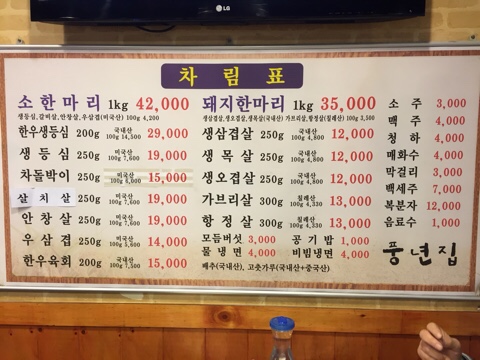 LG
차림표
소한마리 1kg 42,000
생등심,갈비살,안창살,우삼겹(미국산) 100g 4,200
한우생등심 200g 국내산 100g 14,500 29,000
생등심 250g 미국산 100g 7,600 19,000
차돌박이 250g 미국산 100g 6,000 15,000
살치살 250g 미국산 100g 7,600 19,000
안창살 250g 미국산 100g 7,600 19,000
우삼겹 250g 미국산 100g 5,600 14,000
한우육회 200g 국내산 100g 7,500 15,000
돼지한마리 1kg 35,000
생삼겹살,생오겹살,생목살(국내산) 가브리살,항정살(칠레산) 100g 3,500
생삼겹살 250g 국내산 100g 4,800 12,000
생목살 250g 국내산 100g 4,800 12,000
생오겹살 250g 국내산 100g 4,800 12,000
가브리살 300g 칠레산 100g 4,330 13,000
항정살 300g 칠레산 100g 4,330 13,000
모듬버섯 3,000 공기밥 1,000
물냉면 4,000 비빔냉면 4,000
배추(국내산), 고춧가루(국내산+중국산)
소주 3,000
맥주 4,000
청하 4,000
매화수 4,000
막걸리 3,000
백세주 7,000
복분자 12,000
음료수 1,000
풍년집